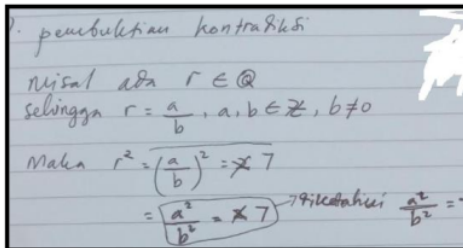 ). pembuktian kontradiksi
misal ada r ∈ ℚ
sehingga r = a/b , a, b ∈ ℤ, b ≠ 0
Maka r² = (a/b)² = 7
= a²/b² = 7 → diketahui a²/b² =